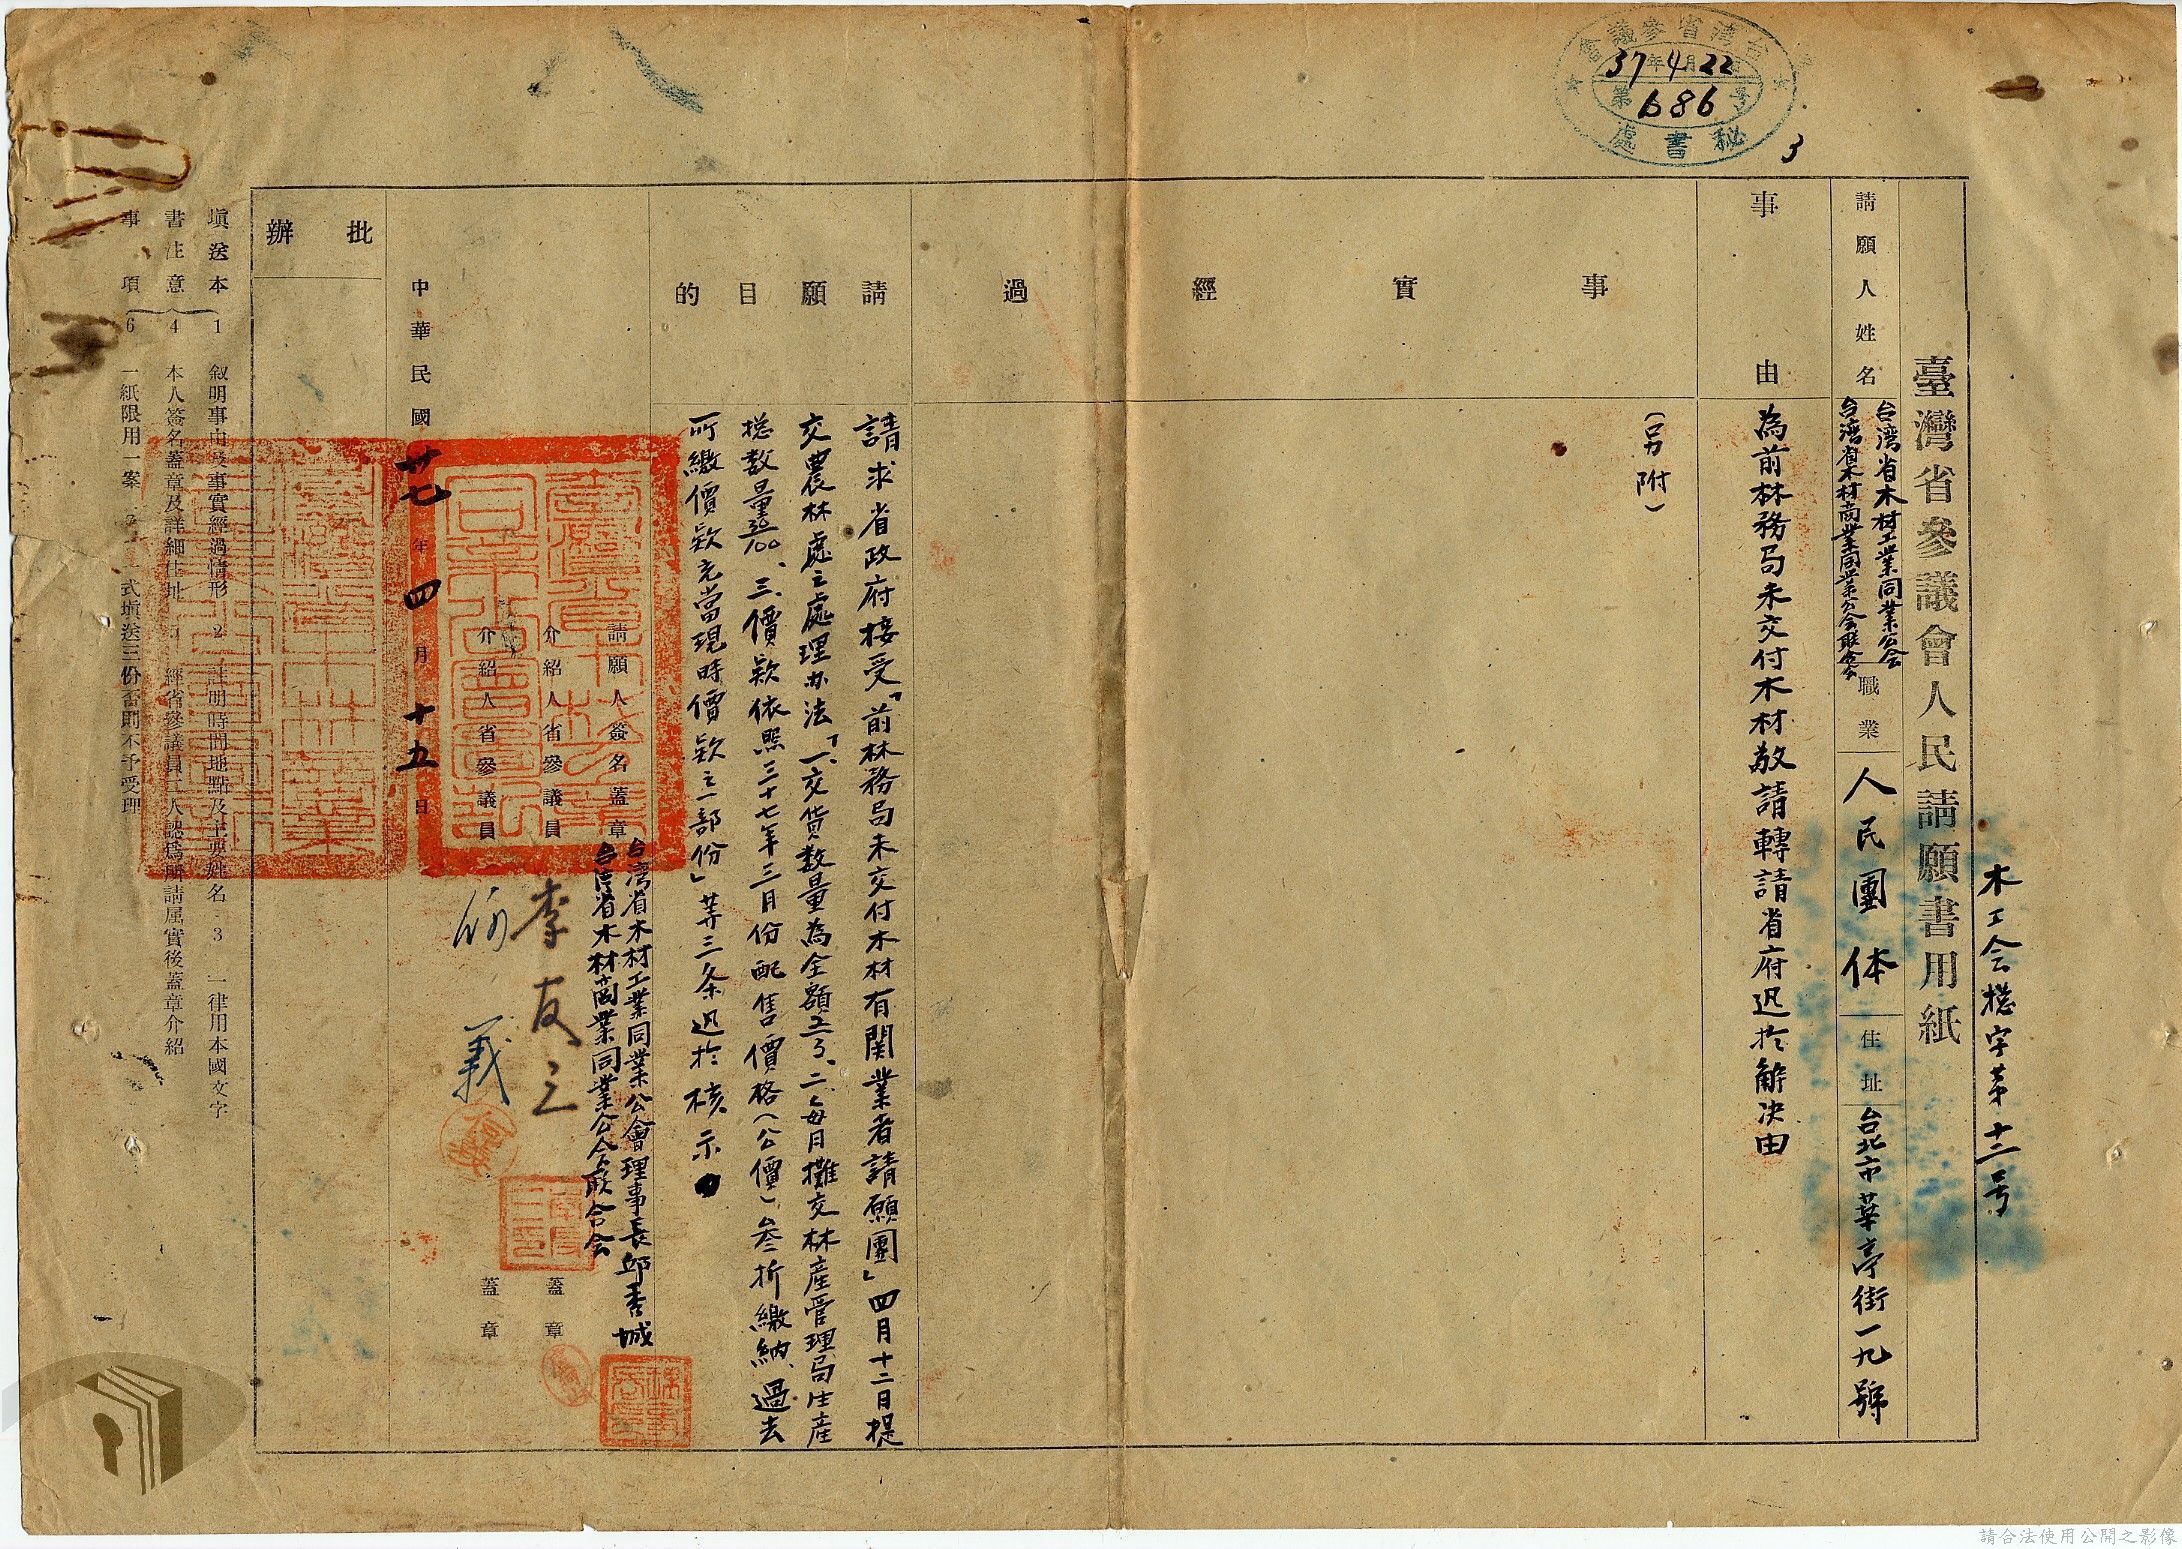 台灣省參議會
37年4月22
第686号
秘書處
3
木工会総字第十二号
臺灣省參議會人民請願書用紙
請願人姓名
台湾省木材工業同業公会
台湾省木材商業同業公会联合会
職業
人民團体
住址
台北市華亭街一九號
事由
為前林務局未交付木材敬請轉請省府迅於解決由
事實經過
(另附)
請願目的
請求省政府接受「前林務局未交付木材有関業者請願團」四月十二日提
交農林處之處理办法「一、交货数量為全額二、每月攤交林産管理局生産
総数量30/100、三、價欵依照三十七年三月份配售價格(公價)叁折繳納、過去
所繳價欵充當現時價欵之一部份」等三条迅於核示
請願人簽名蓋章
台湾省木材工業同業公會理事長邱秀城
台湾省木材商業同業公会联合会
介紹人省參議員
李友三
蓋章
介紹人省參議員
何義
蓋章
中華民國卅七年四月十五日
批辦
填送本書注意事項
1 敘明事由及事實經過情形 2 註明時間地點及主要姓名 3 一律用本國文字
4 本人簽名蓋章及詳細住址 5 經省參議員二人認爲所請属實後蓋章介紹
6 一紙限用一案 7 一式塡送三份否則不予受理
請合法使用公開之影像